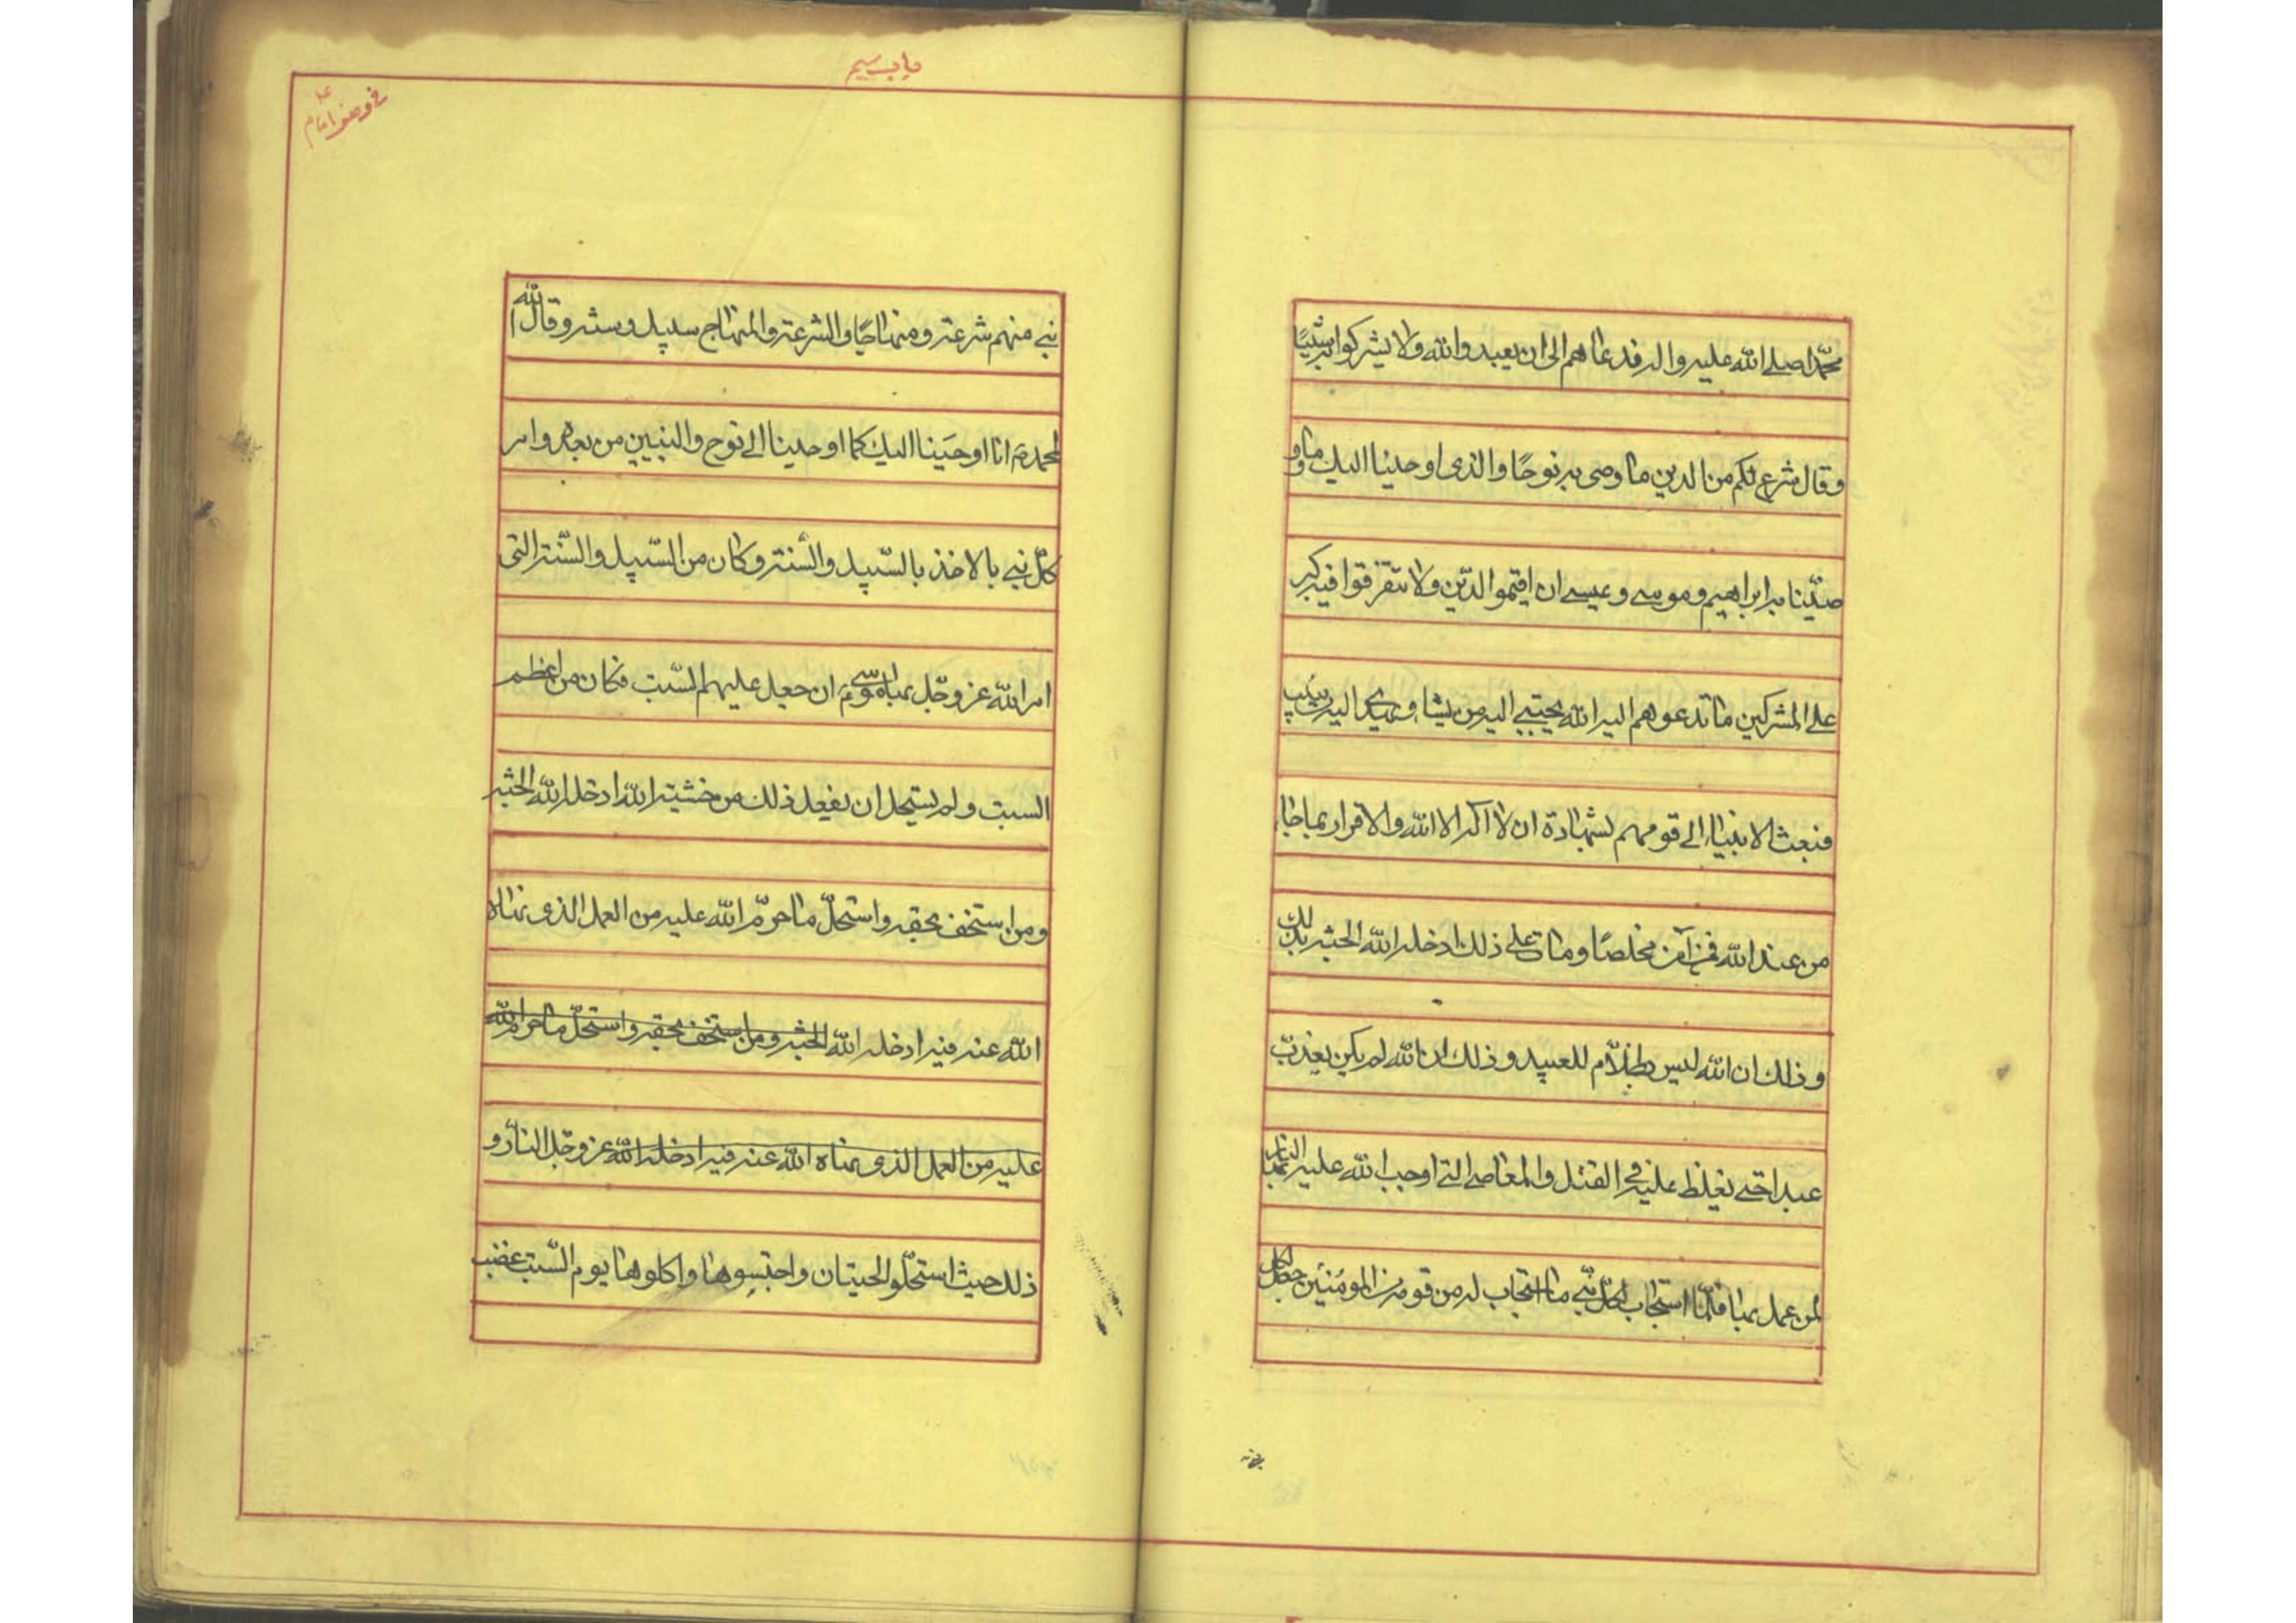 محمّدا صلى الله عليه واله فدعاهم الى ان يعبدوا الله ولا يشركوا به شيئًا
وقال شرع لكم من الدين ما وصى به نوحًا والذى اوحينا اليك وما و
صّينا به ابراهيم وموسى وعيسى ان اقيموا الدّين ولا تتفرقوا فيه كبر
على المشركين ما تدعوهم اليه الله يجتبى اليه من يشاء ويهدى اليه من ينيب
فبعث الانبياء الى قومهم بشهادة ان لا اله الا الله والاقرار بما جاء
من عند الله فمن آمن مخلصًا ومات على ذلك ادخله الله الجنة بذلك
وذلك ان الله ليس بظلّام للعبيد وذلك ان الله لم يكن يعذب
عبدا حتى يغلظ عليه فى القتل والمعاصى التى اوجب الله عليه بها النار
لمن عمل بها فلمّا استجاب لكلّ نبّى ما استجاب له من قومه من المومنين جعل لكل
باب سيم
نبى منهم شرعة ومنهاجًا والشرعة والمنهاج سبيل وسنة وقال الله
لمحمد انا اوحينا اليك كما اوحينا الى نوح والنبيين من بعده وامر
كلّ نبى بالاخذ بالسّبيل والسّنة وكان من السّبيل والسّنة التى
امر الله عز وجّل بها موسى ان جعل عليهم السّبت فكان من اعظم
السبت ولم يستحل ان يفعل ذلك من خشية الله ادخله الله الجنة
ومن استخف بحقه واستحلّ ما حرمّ الله عليه من العمل الذى نهاه
الله عنه فيه ادخله الله الجنة ومن استخف بحقه واستحلّ ما حرم الله
عليه من العمل الذى نهاه الله عنه فيه ادخله الله عز وجّل النار و
ذلك حيث استحلّو الحيتان واحتبسوها واكلوها يوم السّبت غضب